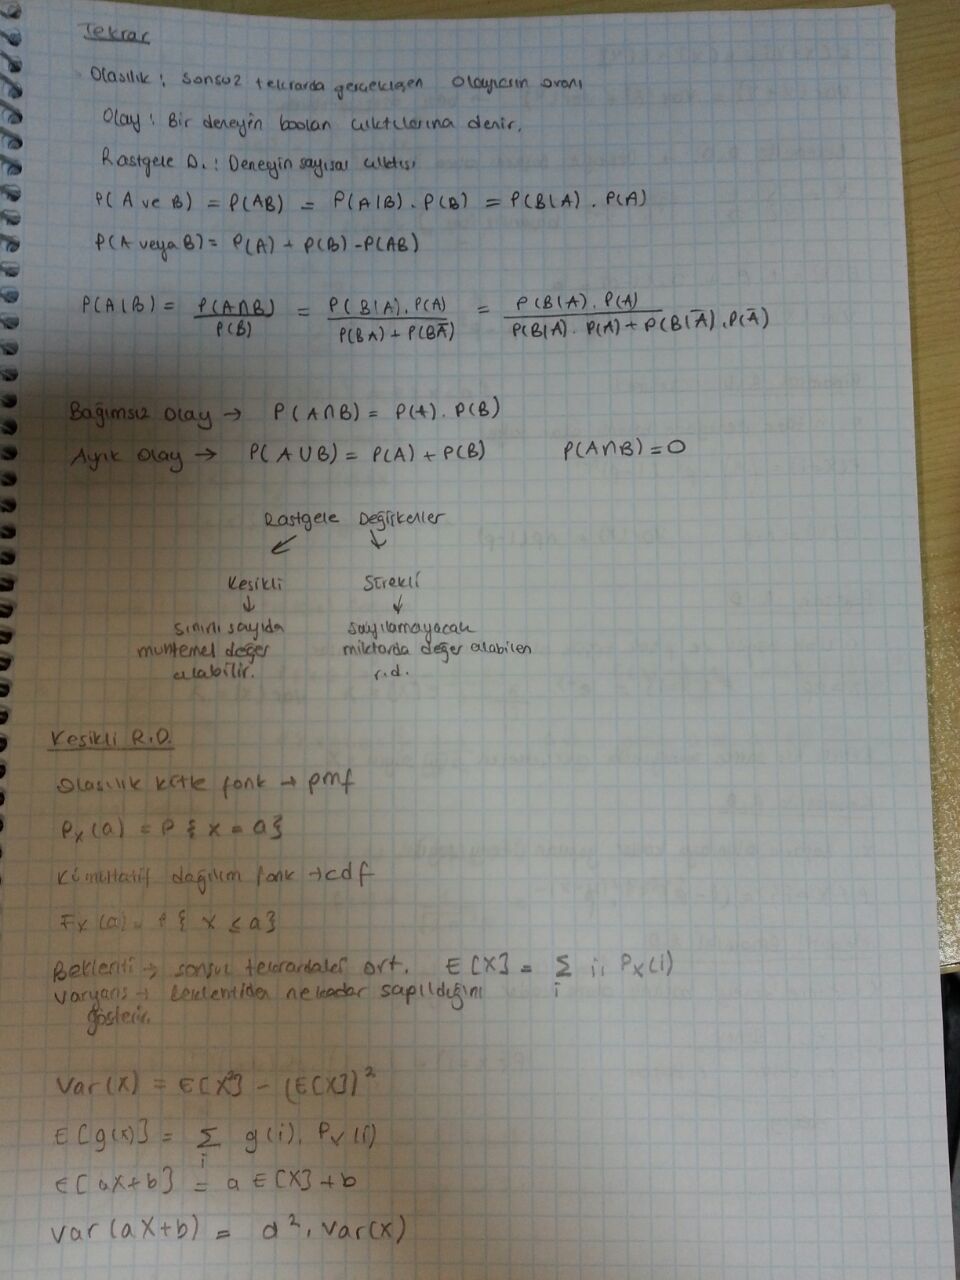 Tekrar
Olasılık : Sonsuz tekrarda gerçekleşen olayların oranı
Olay : Bir deneyin boolan çıktılarına denir.
Rastgele D. : Deneyin sayısal çıktısı
P(A ve B) = P(AB) = P(A|B) . P(B) = P(B|A) . P(A)
P(A veya B) = P(A) + P(B) - P(AB)
P(A|B) = P(A∩B) / P(B) = P(B|A) . P(A) / P(BA) + P(BĀ) = P(B|A) . P(A) / P(B|A) . P(A) + P(B|Ā) . P(Ā)
Bağımsız Olay → P(A∩B) = P(A) . P(B)
Ayrık Olay → P(A∪B) = P(A) + P(B) P(A∩B) = 0
Rastgele Değişkenler
Kesikli Sürekli
sınırlı sayıda sayılamayacak
muhtemel değer miktarda değer alabilen
alabilir. r.d.
Kesikli R.D.
Olasılık kütle fonk → pmf
Px(a) = P{x = a}
Kümültatif dağılım fonk → cdf
Fx(a) = P{x ≤ a}
Beklenti → sonsuz tekrardaki ort. E[X] = Σ i. Px(i)
i
Varyans → beklentiden ne kadar sapıldığını
gösterir.
Var(X) = E[X²] - (E[X])²
E[g(x)] = Σ g(i). Px(i)
i
E[aX+b] = a E[X] + b
Var(aX+b) = a². Var(x)